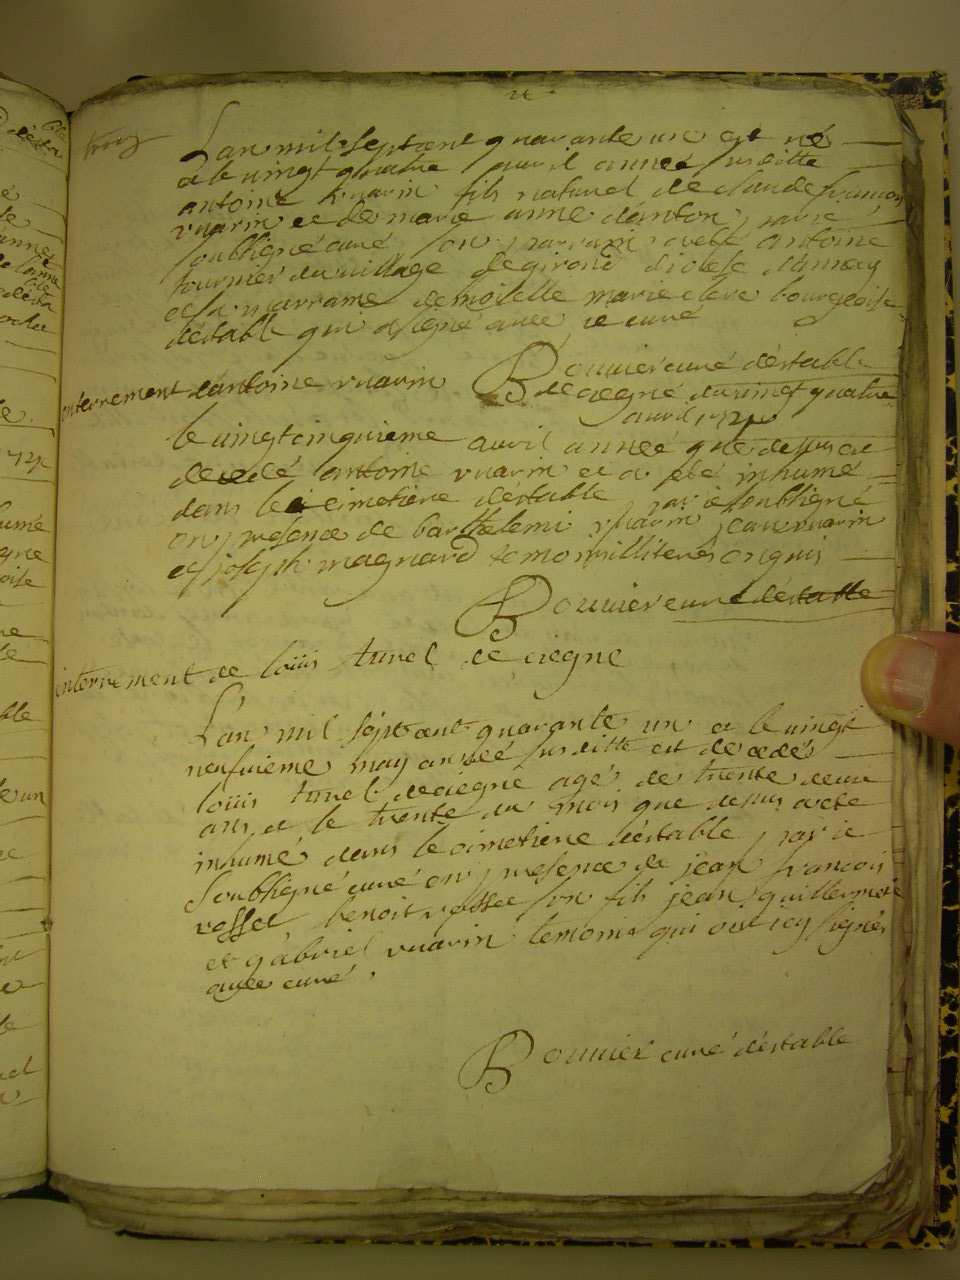 Lan mil septcent quarante un est né
a le vingt quatre avril année susditte
antoine vuarin fils naturel de claude francois
vuarin et de marie anne danton par ie
soubsigné curé son parrain a esté antoine
fournier du village de
et sa marraine demoiselle marie clere bourgeoise
déstable qui a signé avec ie curé
Bouvier curé déstable
enterrement dantoine vuarin
de ciegne du vingt quatre
avril 1741
le vingtcinquieme avril année que dessus est
decedé antoine vuarin et a esté inhumé
dans le cimetiere destable par ie soubsigné
en presence de barthelemi vuarin jean vuarin
et joseph magnard temoins illiterés enquis
Bouvier curé déstable
enterrement de loüis tunel de ciegne
Lan mil septcent quarante un a le vingt
neufvieme may année susditte est decedés
loüis tunel de ciegne agé de trente deux
ans, et le trente du mois que dessus a esté
inhumé dans le cimetiere déstable par ie
soubsigné curé en presence de jean francois
vosset, benoit vosset son fils jean
et gabriel vuarin temoins qui ont icy signés
avec curé,
Bouvier curé déstable